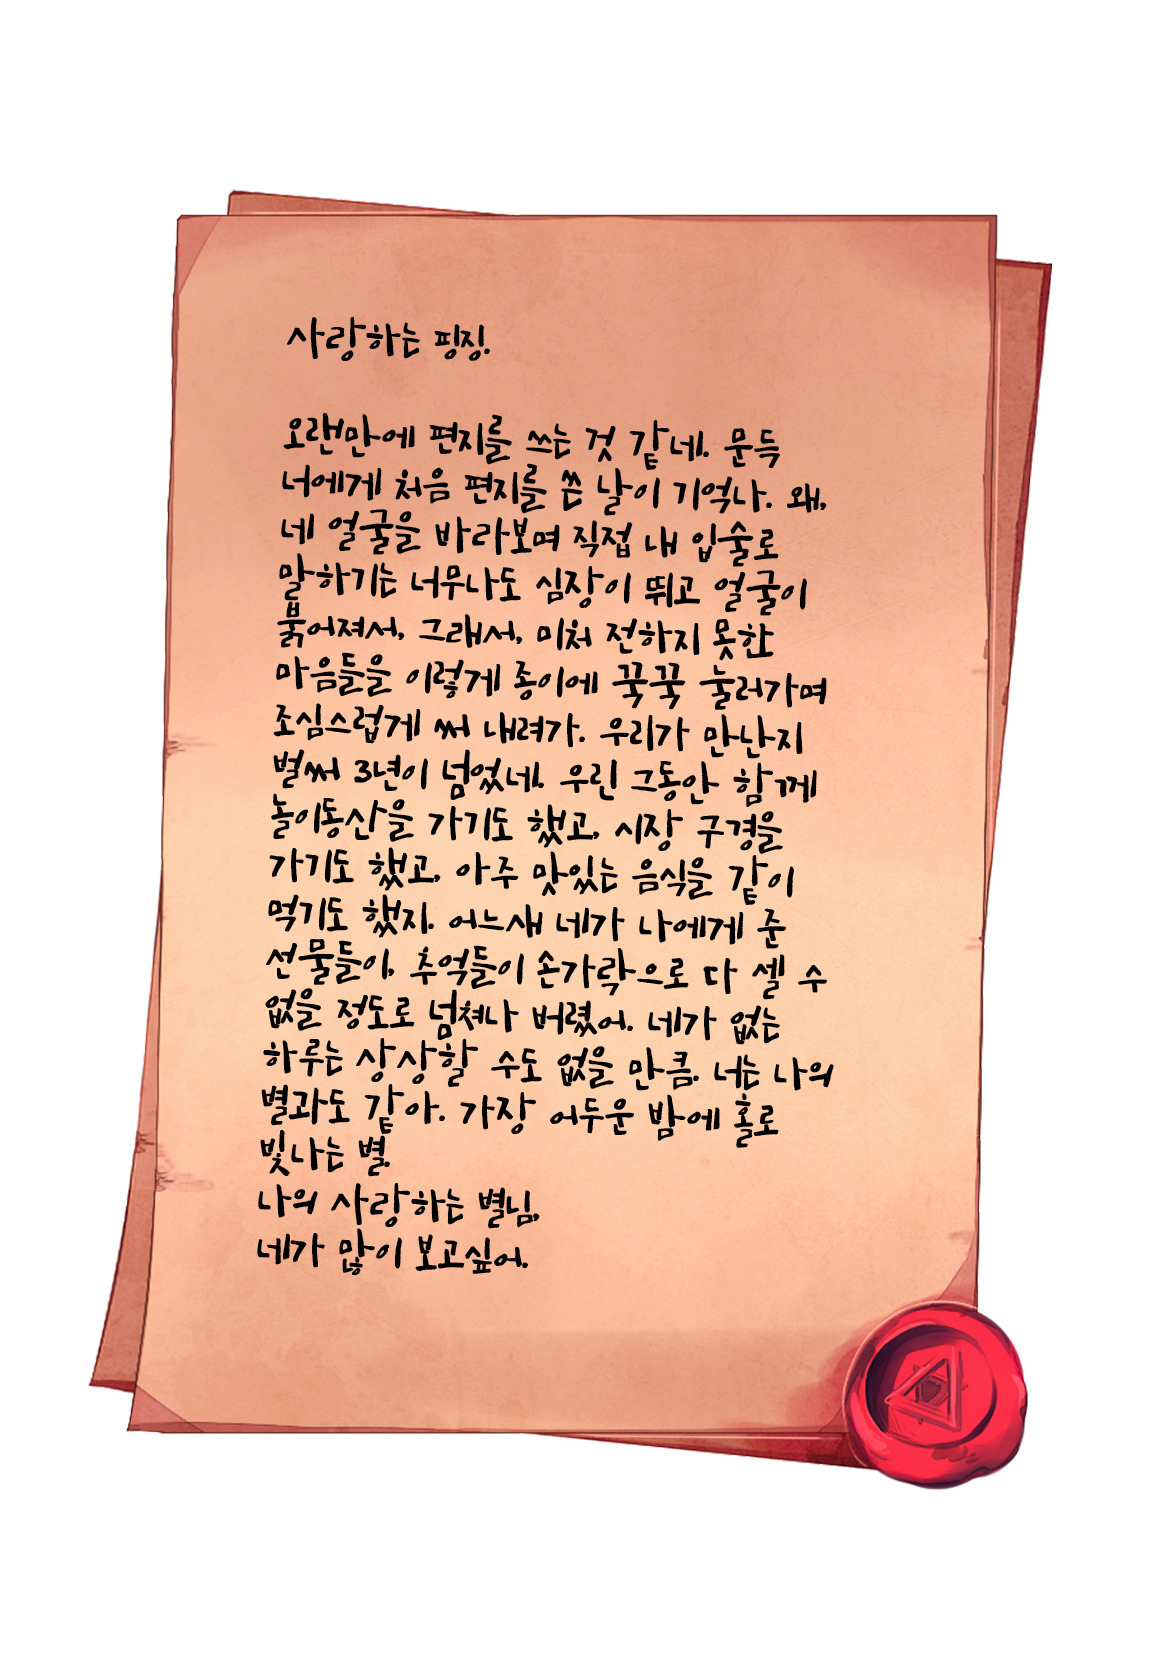 사랑하는 핑징.
오랜만에 편지를 쓰는 것 같네. 문득
너에게 처음 편지를 쓴 날이 기억나. 왜,
네 얼굴을 바라보며 직접 내 입술로
말하기는 너무나도 심장이 뛰고 얼굴이
붉어져서, 그래서, 미처 전하지 못한
마음들을 이렇게 종이에 꾹꾹 눌러가며
조심스럽게 써 내려가. 우리가 만난지
벌써 3년이 넘었네. 우린 그동안 함께
놀이동산을 가기도 했고, 시장 구경을
가기도 했고, 아주 맛있는 음식을 같이
먹기도 했지. 어느새 네가 나에게 준
선물들이, 추억들이 손가락으로 다 셀 수
없을 정도로 넘쳐나 버렸어. 네가 없는
하루는 상상할 수도 없을 만큼. 너는 나의
별과도 같아. 가장 어두운 밤에 홀로
빛나는 별.
나의 사랑하는 별님,
네가 많이 보고싶어.